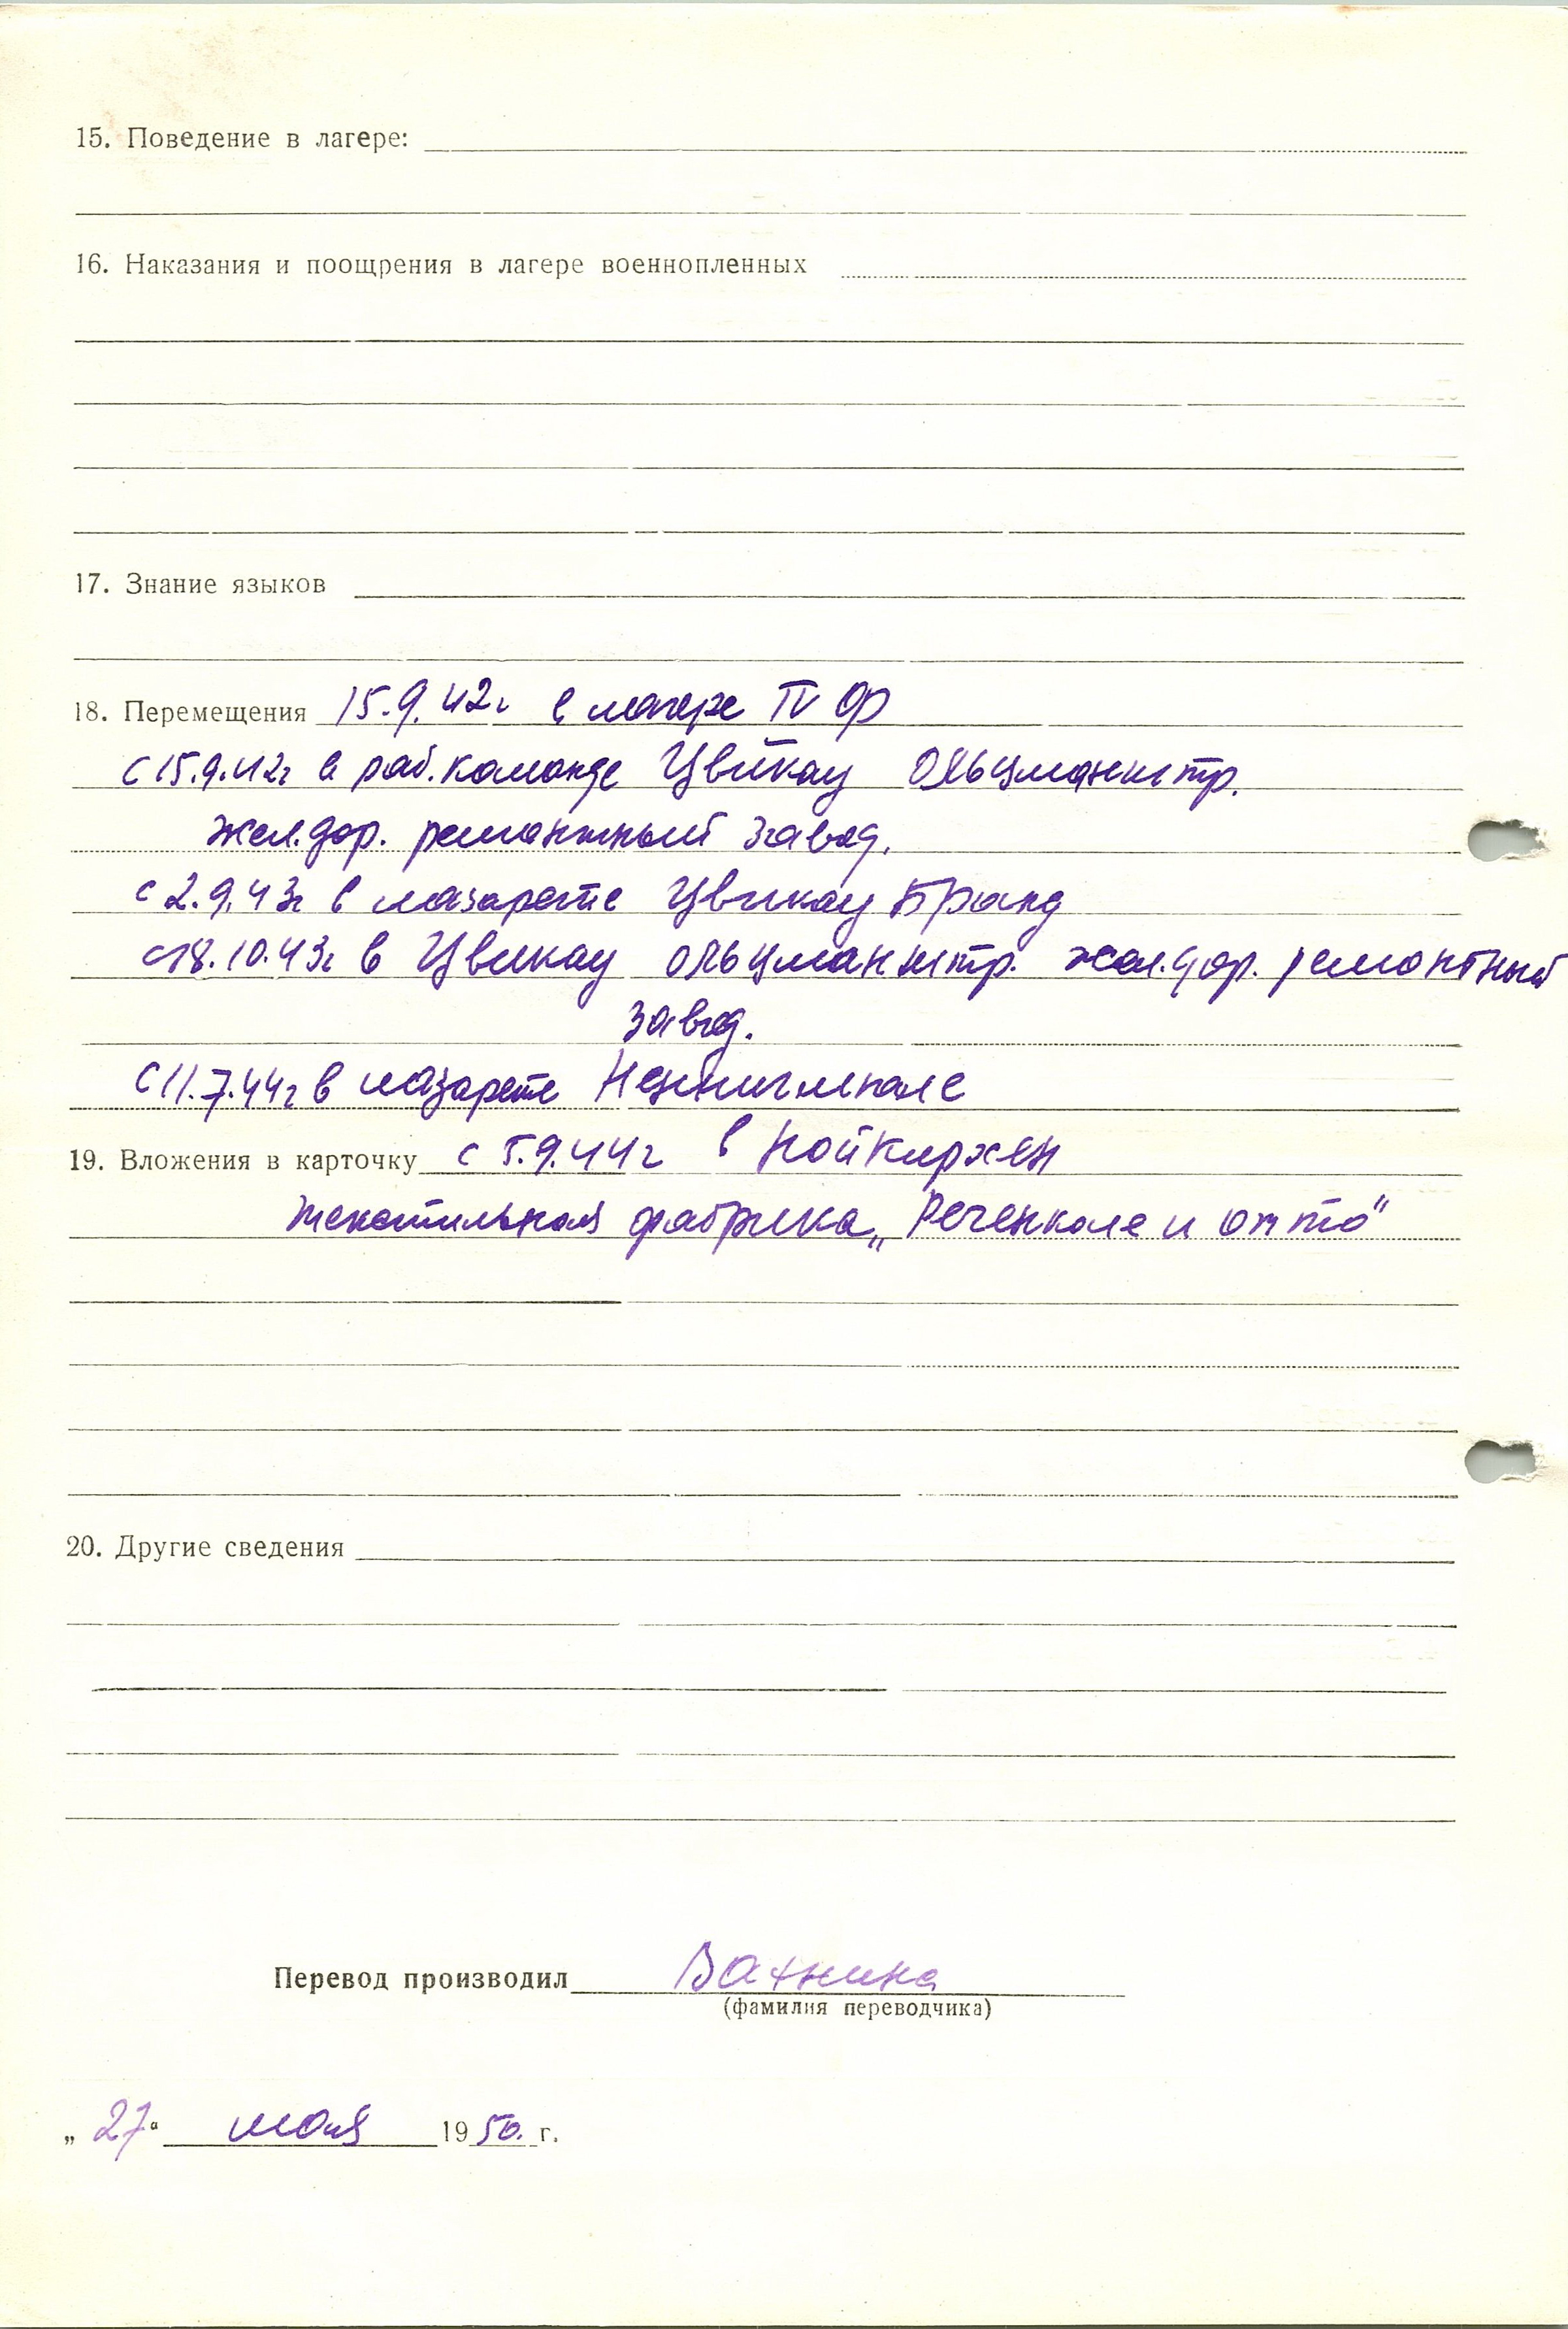 15. Поведение в лагере:
16. Наказания и поощрения в лагере военнопленных
17. Знание языков
18. Перемещения 15.9.42г в лагере IV Ф
с 15.9.42г в раб. команде Цвикау Ольцманштр.
жел.дор. ремонтный завод.
с 2.9.43г в лазарете Цвикау Бранд
с 18.10.43г в Цвикау Ольцманштр. жел.дор. ремонтный
завод.
с 11.7.44г в лазарете
19. Вложения в карточку с 5.9.44г в Нойкирхен
текстильная фабрика „ и Отто"
20. Другие сведения
Перевод производил Вахнина
(фамилия переводчика)
„27" мая 1950. г.